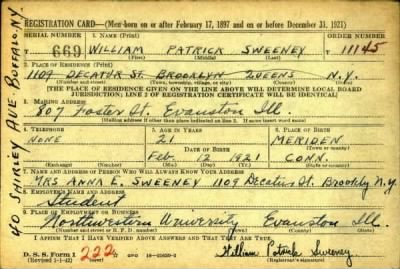 REGISTRATION CARD—(Men born on or after February 17, 1897 and on or before December 31, 1921)
SERIAL NUMBER 1. NAME (Print) ORDER NUMBER
T 669 WILLIAM PATRICK SWEENEY T 11145
(First) (Middle) (Last)
2. PLACE OF RESIDENCE (Print)
1109 DECATUR ST. BROOKLYN QUEENS N.Y.
(Number and street) (Town, township, village, or city) (County) (State)
[THE PLACE OF RESIDENCE GIVEN ON THE LINE ABOVE WILL DETERMINE LOCAL BOARD
JURISDICTION; LINE 2 OF REGISTRATION CERTIFICATE WILL BE IDENTICAL]
3. MAILING ADDRESS
807 Foster St. Evanston Ill.
[Mailing address if other than place indicated on line 2. If same insert word same]
4. TELEPHONE 5. AGE IN YEARS 6. PLACE OF BIRTH
NONE 21 MERIDEN
DATE OF BIRTH (Town or county)
Feb. 12 1921 CONN.
(Exchange) (Number) (Mo.) (Day) (Yr.) (State or country)
7. NAME AND ADDRESS OF PERSON WHO WILL ALWAYS KNOW YOUR ADDRESS
MRS ANNA E. SWEENEY 1109 Decatur St. Brooklyn N.Y.
8. EMPLOYER'S NAME AND ADDRESS
Student
9. PLACE OF EMPLOYMENT OR BUSINESS
Northwestern University Evanston Ill.
(Number and street or R. F. D. number) (Town) (County) (State)
I AFFIRM THAT I HAVE VERIFIED ABOVE ANSWERS AND THAT THEY ARE TRUE.
D. S. S. Form 1 222 William Patrick Sweeney
(Revised 1-1-42) GPO (Registrant's signature)
40 SHIRLEY AVE BUFFALO. NY